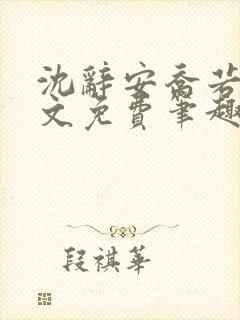 沈辭安喬若
文免費筆趣
段祺華